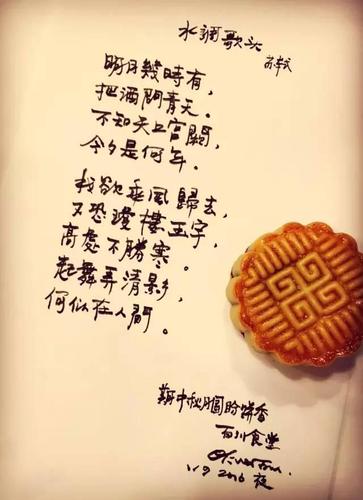 水調歌头
苏軾
明月幾時有，
把酒問青天。
不知天上宫闕，
今夕是何年。
我欲乘風歸去，
又恐瓊樓玉宇，
高處不勝寒。
起舞弄清影，
何似在人間。
中秋月圓盼饼香
百川食堂
2016 夜